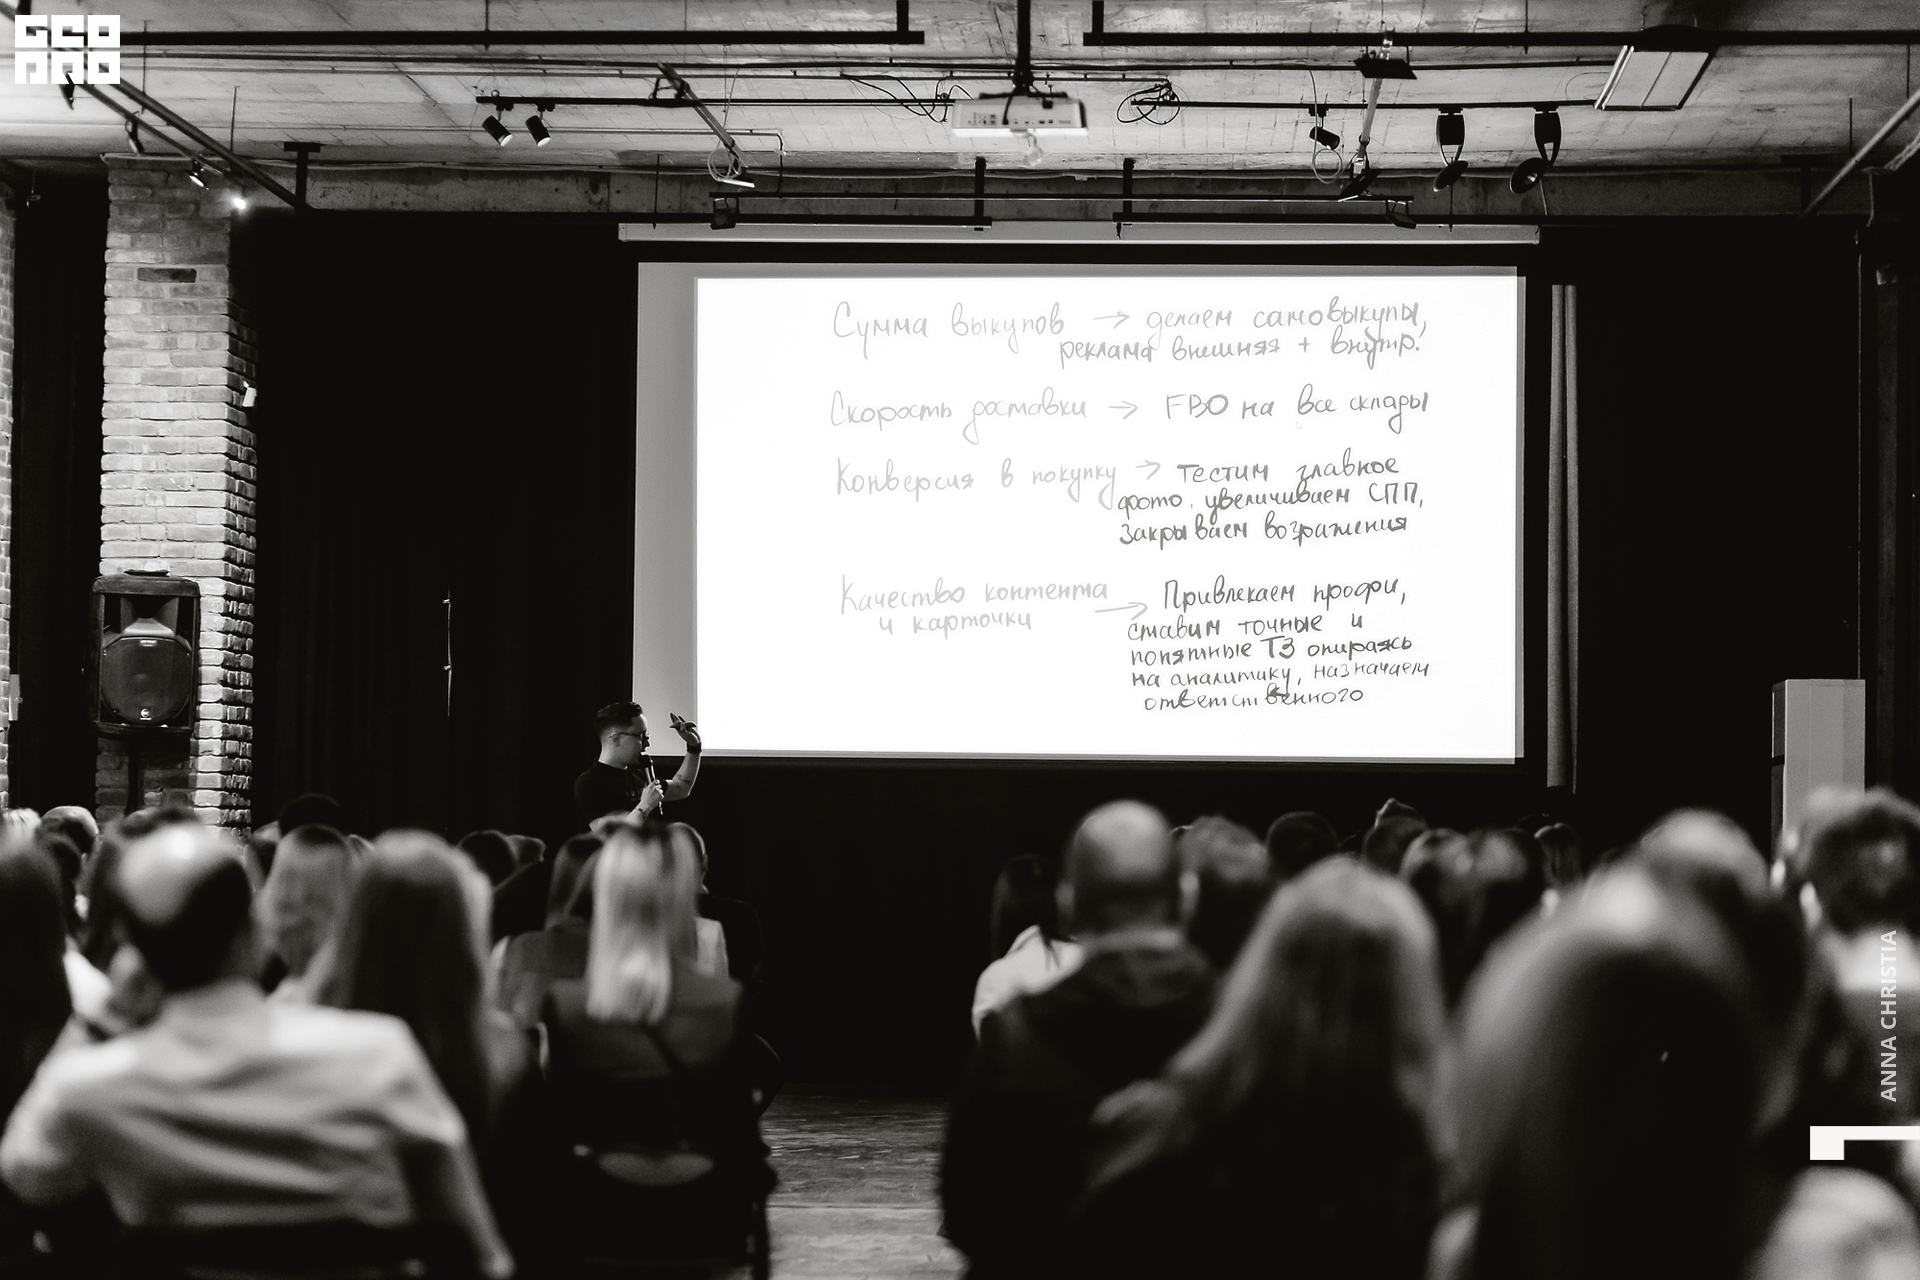 GEO
PRO
Сумма выкупов → делаем самовыкупы,
реклама внешняя + внутр.
Скорость доставки → FBO на все склады
Конверсия в покупку → тестим главное
фото, увеличиваем СПП,
закрываем возражения
Качество контента
и карточки → Привлекаем профи,
ставим точные и
понятные ТЗ опираясь
на аналитику, назначаем
ответственного
ANNA CHRISTIA